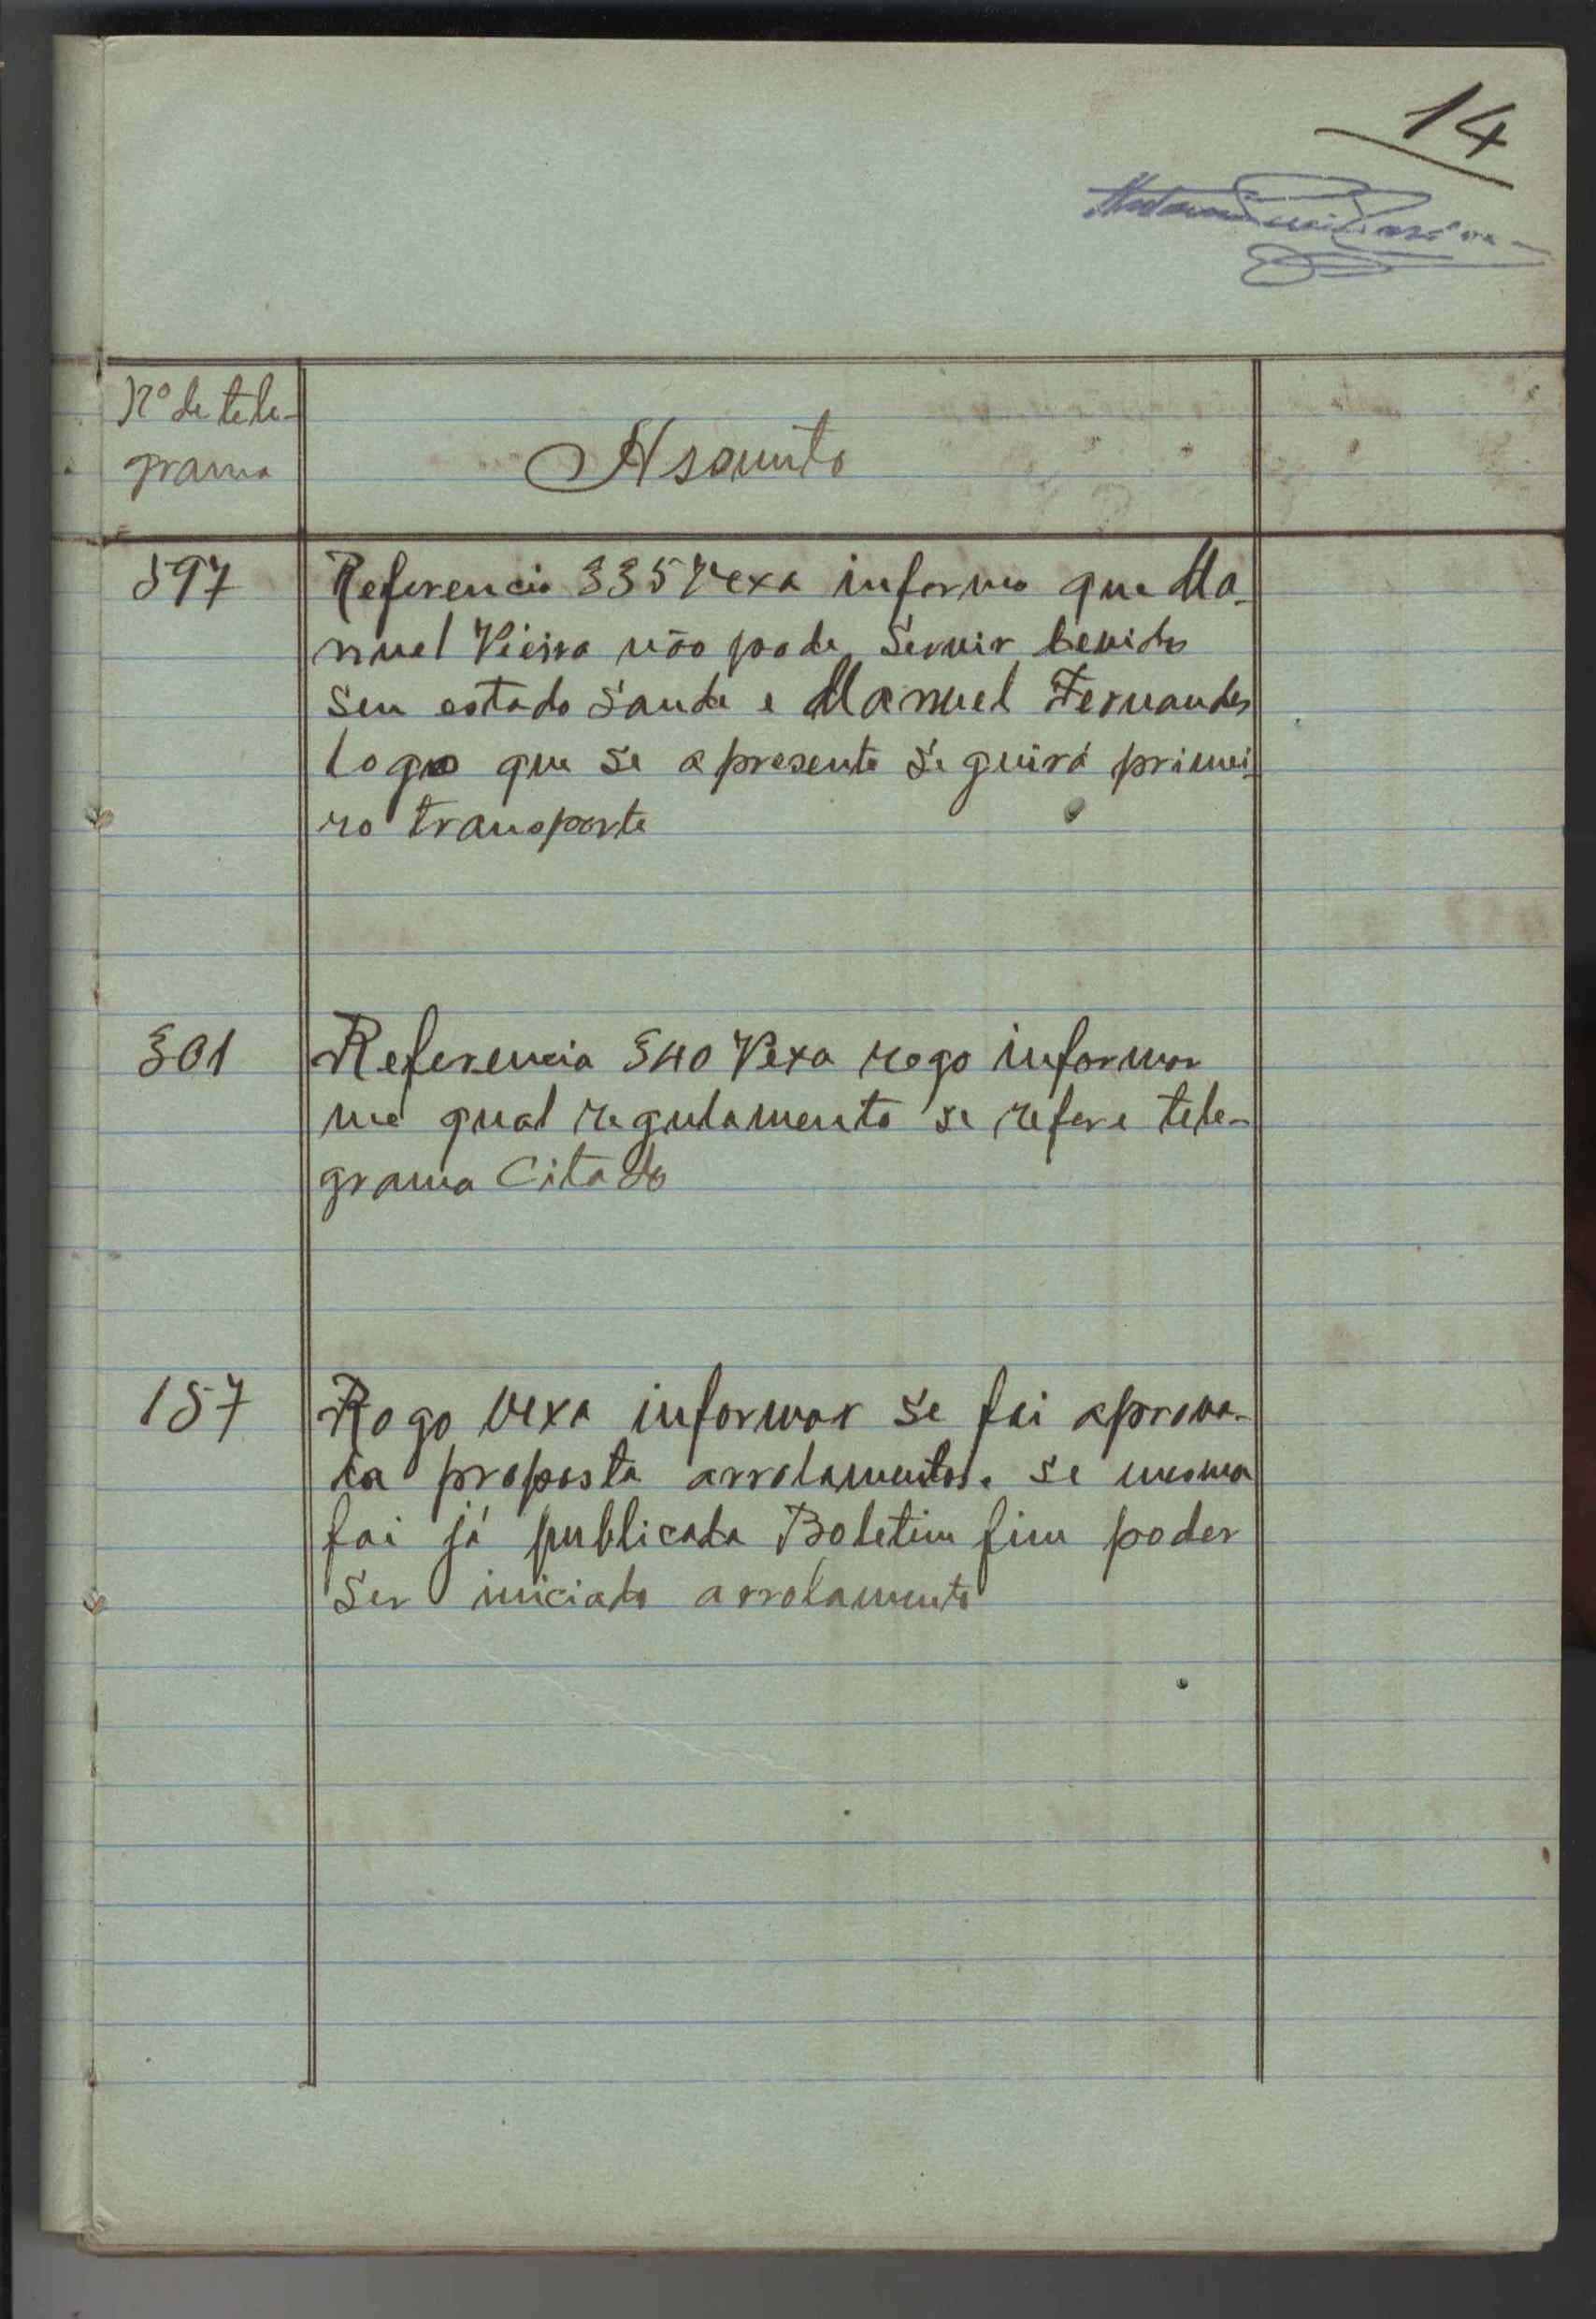 14
Nº de tele-
grama
Assunto
597
Referencia 335 Vexa informo que Ma-
nuel Vieira não pode servir devido
seu estado saude e Manuel Fernandes
logo que se apresente seguirá primei-
ro transporte
301
Referencia 340 Vexa rogo informar
me qual regulamento se refere tele-
grama Citado
157
Rogo Vexa informar se foi aprova-
da proposta arrolamentos. se mesma
foi já publicada Boletim fim poder
ser iniciado arrolamento